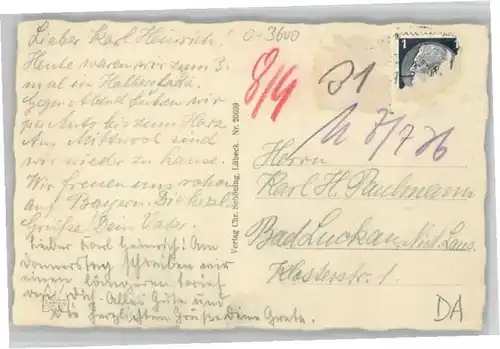 Lieber Karl Heinrich!
Heute waren wir zum 3.
mal in Halberstadt.
Gegen Abend fuhren wir
per Auto bis zum Harz
Am Mittwoch sind
wir wieder zu hause.
Wir freuen uns schon
auf Bayern. Die herzl.
Grüße Dein Vater.
Lieber Karl Heinrich! Am
Donnerstag schreiben wir
einen längeren Brief
Alles Gute und
die herzlichsten Grüße Deine Grete.
Verlag Chr. Schöning, Lübeck Nr. 26609
0-3600
8/4
31
1
7/7 36
Herrn
Karl H. Paulmann
Bad Luckau Nied Laus.
Klosterstr. 1.
DA